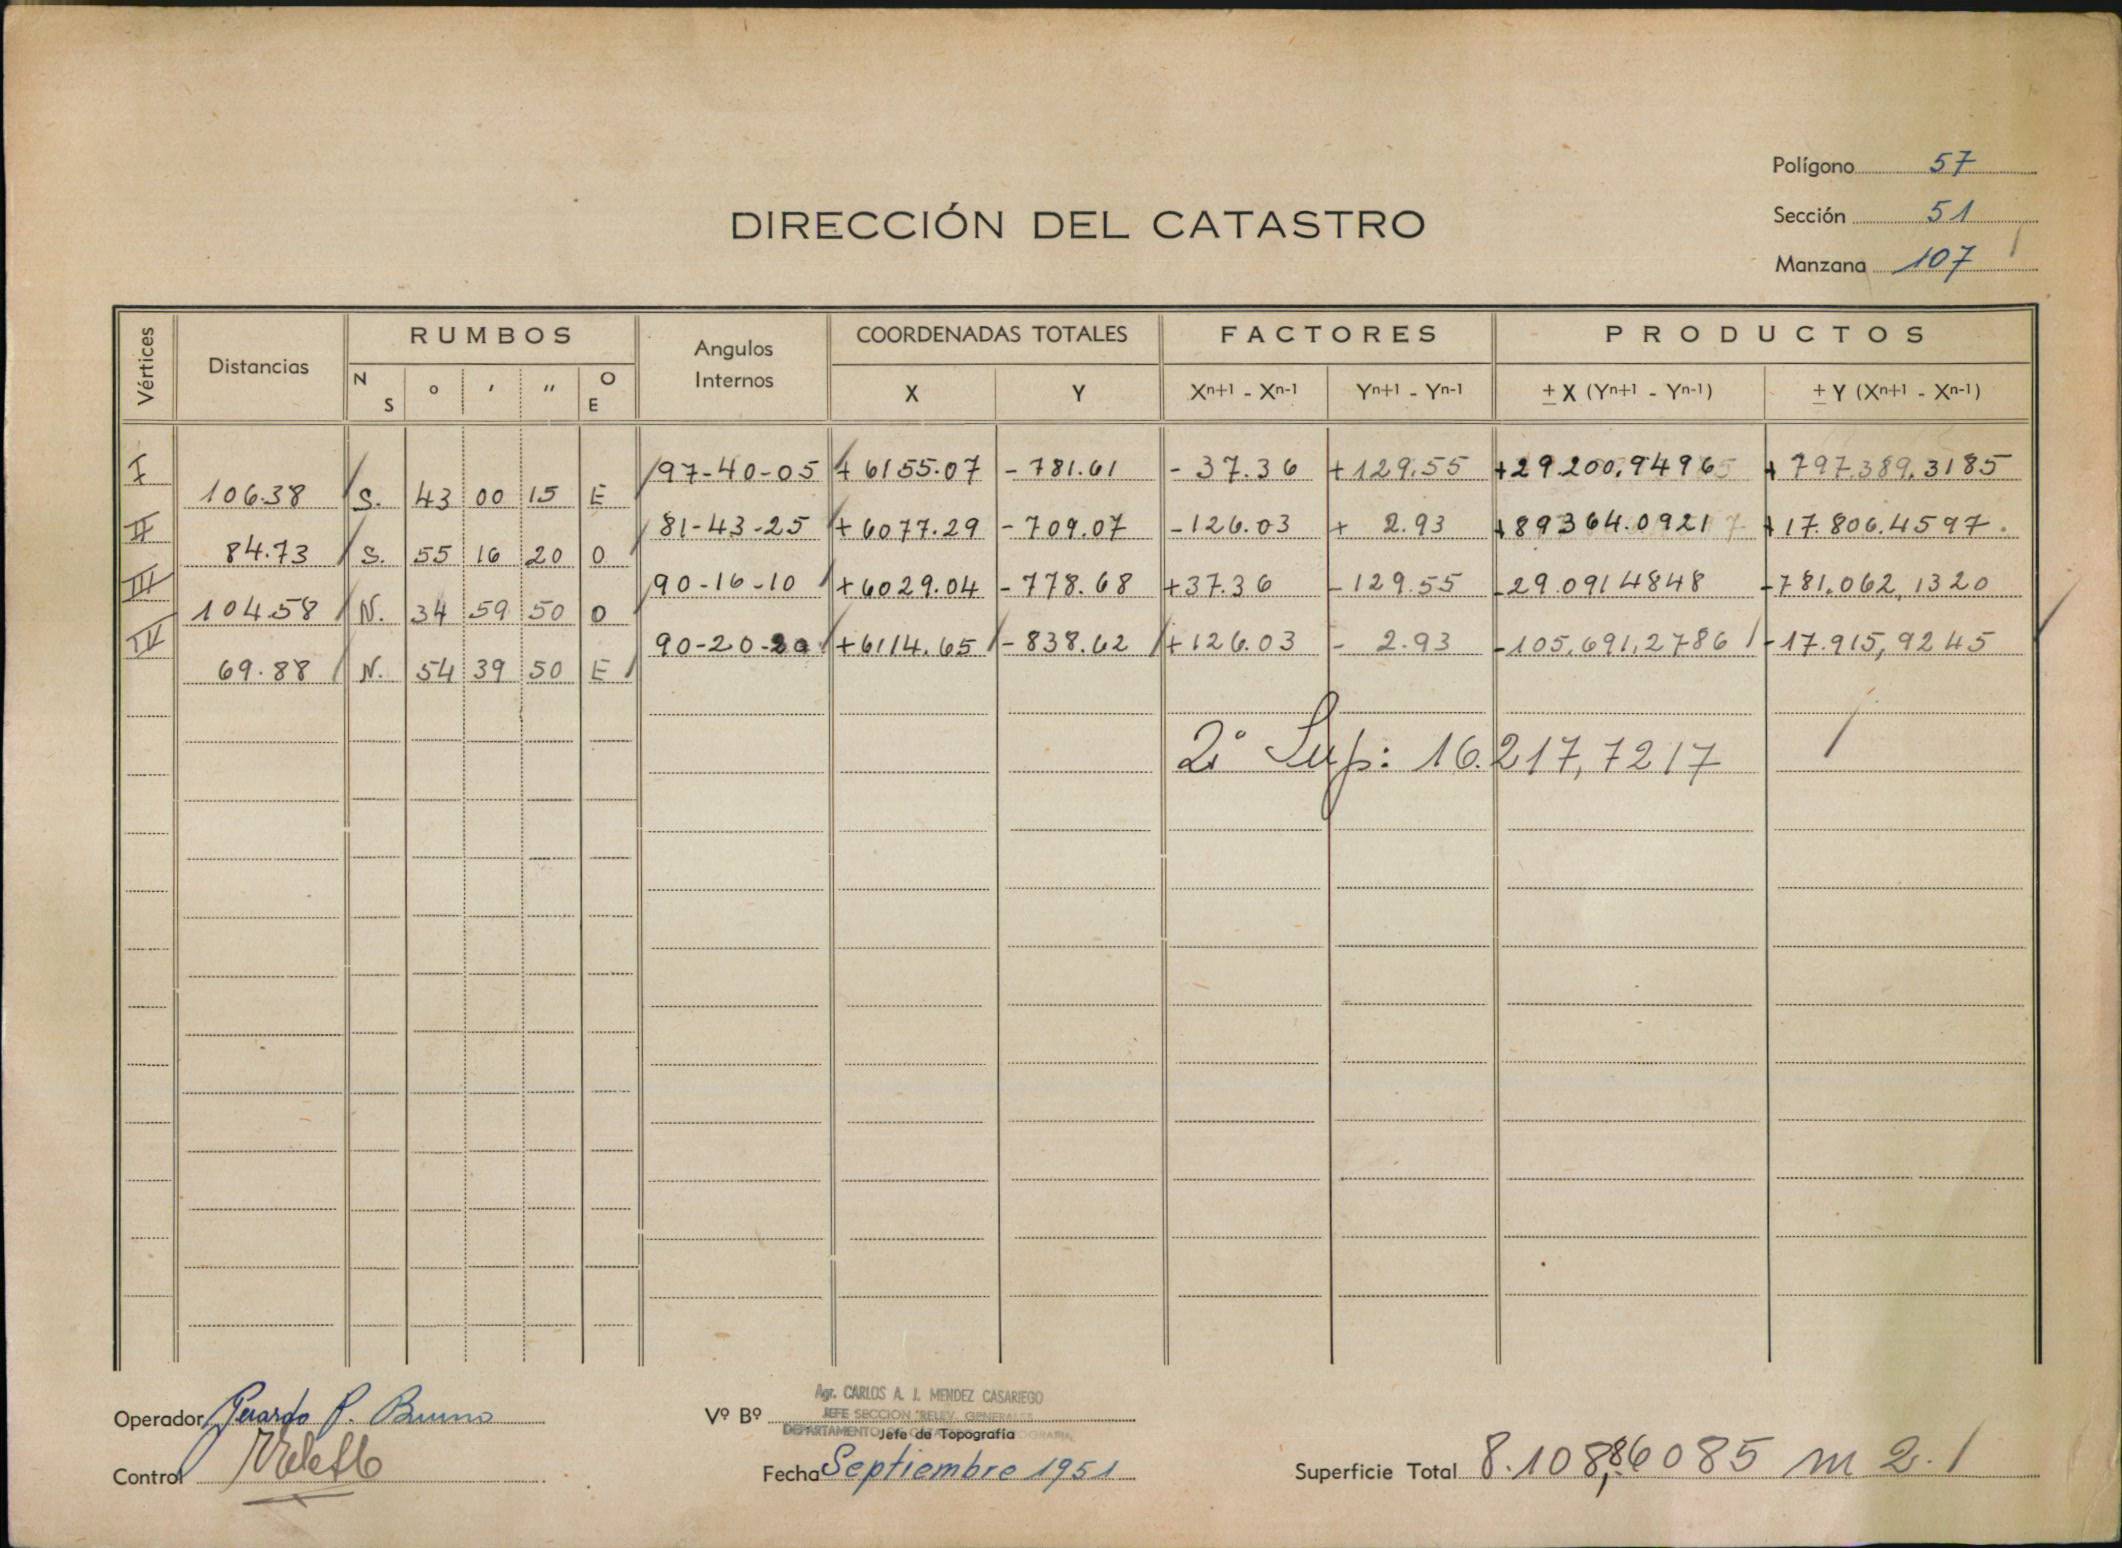 Polígono 57
DIRECCIÓN DEL CATASTRO
Sección 51
Manzana 107
Vértices Distancias RUMBOS Angulos Internos COORDENADAS TOTALES FACTORES PRODUCTOS
N S ° ' " O E X Y Xn+1 - Xn-1 Yn+1 - Yn-1 ± X (Yn+1 - Yn-1) ± Y (Xn+1 - Xn-1)
I 97-40-05 + 6155.07 - 781.61 - 37.36 + 129.55 + 29.200,9496 + 797.389.3185
106.38 S. 43 00 15 E
II 81-43-25 + 6077.29 - 709.07 - 126.03 + 2.93 + 89364.0921 + 17.806.4597.
84.73 S. 55 16 20 O
III 90-16-10 + 6029.04 - 778.68 + 37.36 - 129.55 - 29.0914848 - 781.062,1320
104.58 N. 34 59 50 O
IV 90-20-20 + 6114.65 - 838.62 + 126.03 - 2.93 - 105.691,2786 - 17.915,9245
69.88 N. 54 39 50 E
2° Sup: 16.217,7217
Agr. CARLOS A. J. MENDEZ CASARIEGO
Operador Gerardo P. Bruno Vº Bº JEFE SECCION RELEV. GENERALES
DEPARTAMENTO DE CATASTRO Jefe de Topografía
Control Fecha Septiembre 1951 Superficie Total 8.108,86085 m 2.